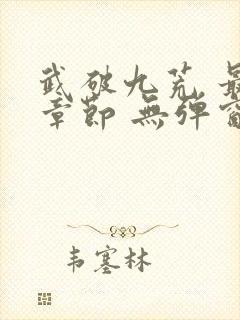 武破九荒 最
章節 無彈窗
韦塞林